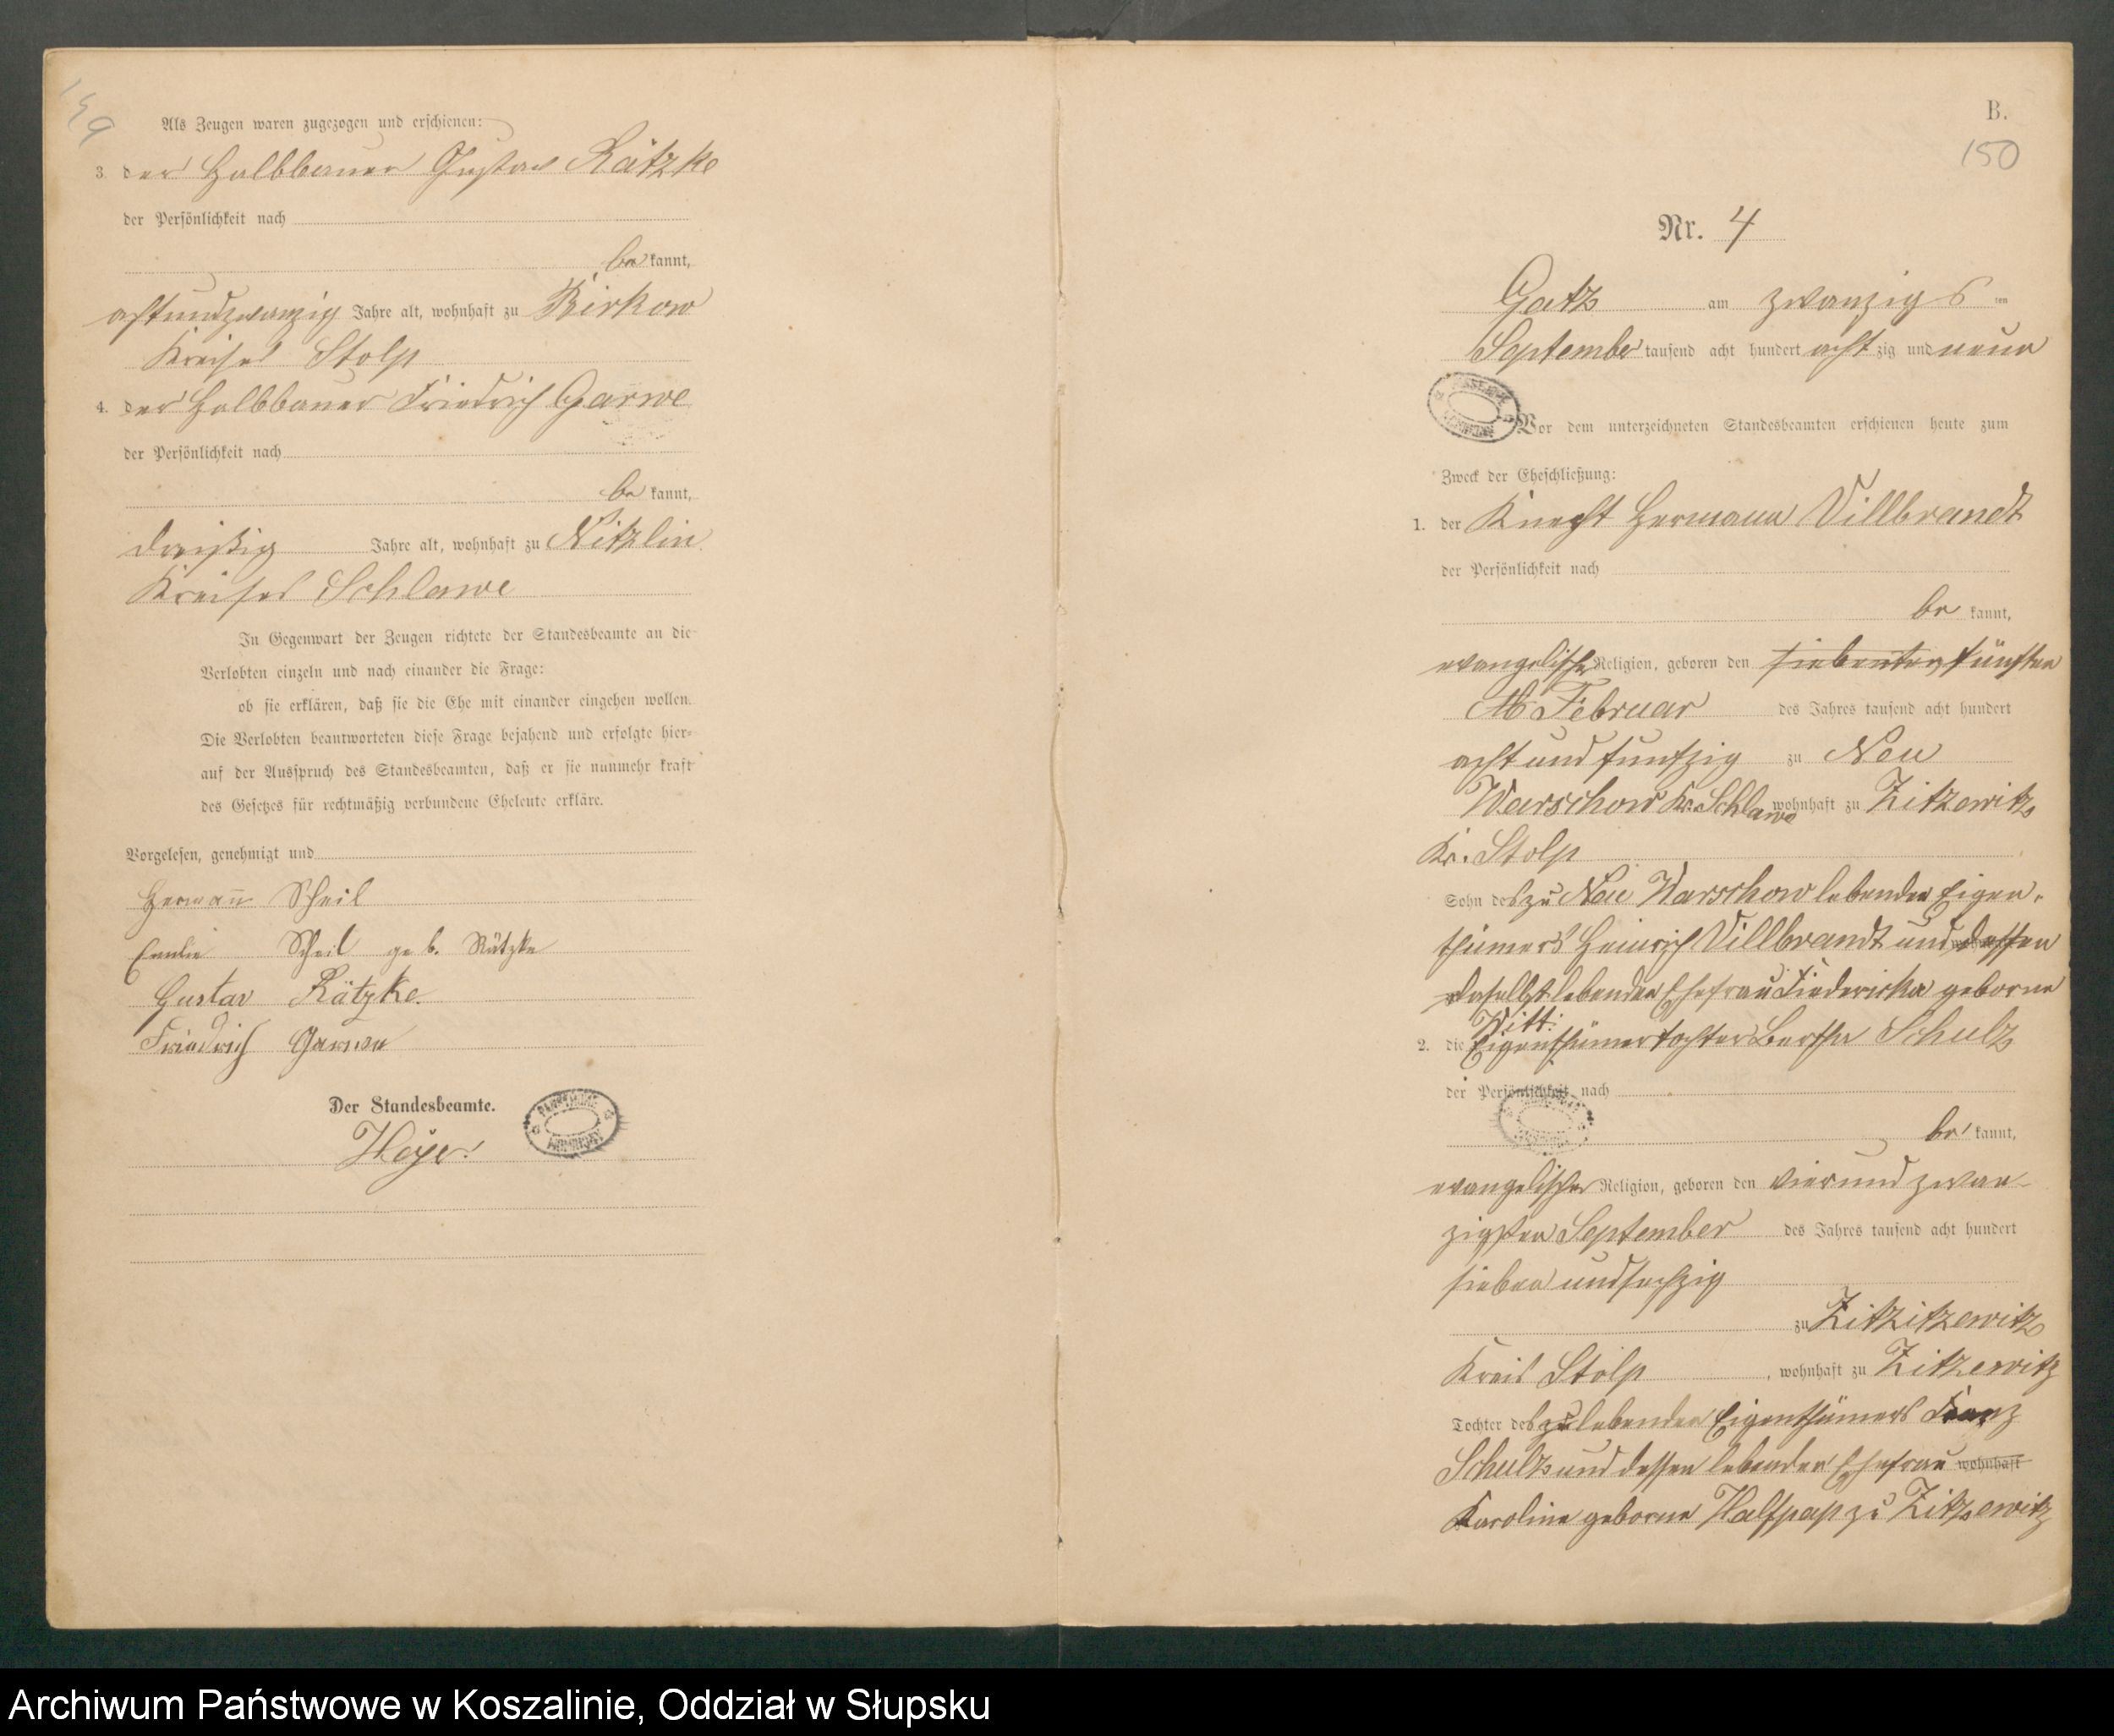 149
Als Zeugen waren zugezogen und erschienen:
3. der Halbbauer Gustav Rätzke
der Persönlichkeit nach
be kannt,
achtundzwanzig Jahre alt, wohnhaft zu Birkow
Kreises Stolp
4. der Halbbauer Friedrich Garwe
der Persönlichkeit nach
be kannt,
dreißig Jahre alt, wohnhaft zu Nitzlin
Kreises Schlawe
In Gegenwart der Zeugen richtete der Standesbeamte an die
Verlobten einzeln und nach einander die Frage:
ob sie erklären, daß sie die Ehe mit einander eingehen wollen.
Die Verlobten beantworteten diese Frage bejahend und erfolgte hier-
auf der Ausspruch des Standesbeamten, daß er sie nunmehr kraft
des Gesetzes für rechtmäßig verbundene Eheleute erkläre.
Vorgelesen, genehmigt und
Hermann Scheil
Emilie Scheil geb. Rätzke
Gustav Rätzke.
Friedrich Garwe
Der Standesbeamte.
Heyer.
B.
150
Nr. 4
Gatz am zwanzigs ten
September tausend acht hundert acht zig und neun
Vor dem unterzeichneten Standesbeamten erschienen heute zum
Zweck der Eheschließung:
1. der Knecht Hermann Villbrandt
der Persönlichkeit nach
be kannt,
evangelischer Religion, geboren den siebenten fünften
Februar des Jahres tausend acht hundert
acht und funfzig zu Neu
Warschow Kr. Schlawe wohnhaft zu Zitzewitz
Kr. Stolp
Sohn des zu Neu Warschow lebenden Eigen-
thümers Heinrich Villbrandt und dessen
daselbst lebenden Ehefrau Friedericke geborne
Witt.
2. die Eigenthümertochter Bertha Schulz
der Persönlichkeit nach
be kannt,
evangelischer Religion, geboren den vierundzwan-
zigsten September des Jahres tausend acht hundert
sieben und sechzig
zu Zitzitzewitz
Kreis Stolp, wohnhaft zu Zitzewitz
Tochter des zu lebenden Eigenthümers Franz
Schulz und dessen lebenden Ehefrau wohnhaft
Karoline geborne Halfpap zu Zitzewitz
Archiwum Państwowe w Koszalinie, Oddział w Słupsku